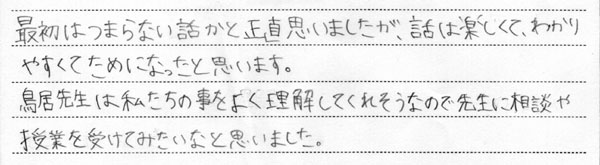 最初はつまらない話かと正直思いましたが、話は楽しくて、わかり
やすくてためになったと思います。
鳥居先生は私たちの事をよく理解してくれそうなので先生に相談や
授業を受けてみたいなと思いました。